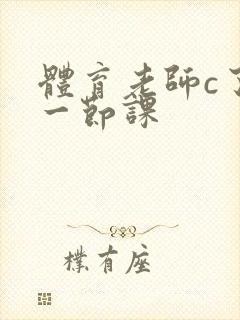 體育老師c了
一節課
樸有座